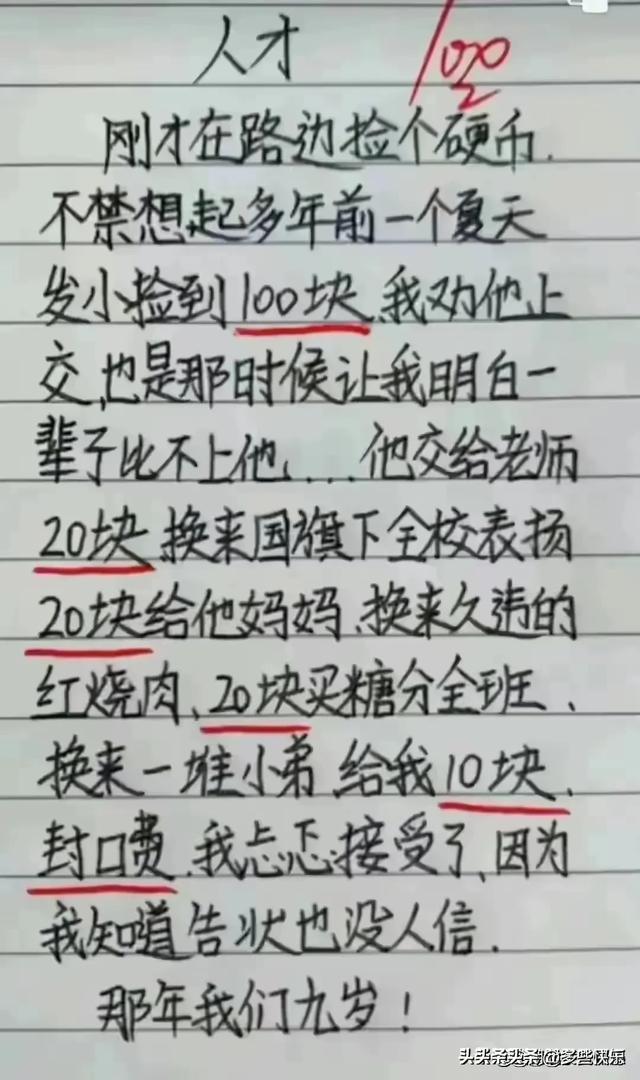 人才
100
刚才在路边捡个硬币.
不禁想起多年前一个夏天
发小捡到100块.我劝他上
交,也是那时候让我明白一
辈子比不上他....他交给老师
20块换来国旗下全校表扬
20块给他妈妈、换来久违的
红烧肉、20块买糖分全班、
换来一堆小弟 给我10块、
封口费.我忐忑接受了、因为
我知道告状也没人信.
那年我们九岁!